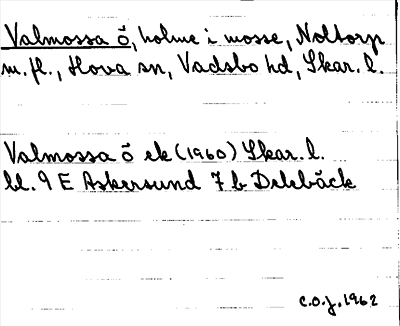 Valmossa ö, holme i mosse, Noltorp
m.fl., Hova sn, Vadsbo hd, Skar. l.
Valmossa ö ek (1960) Skar. l.
bl. 9 E Askersund 7 b Delebäck
C.O.J. 1962